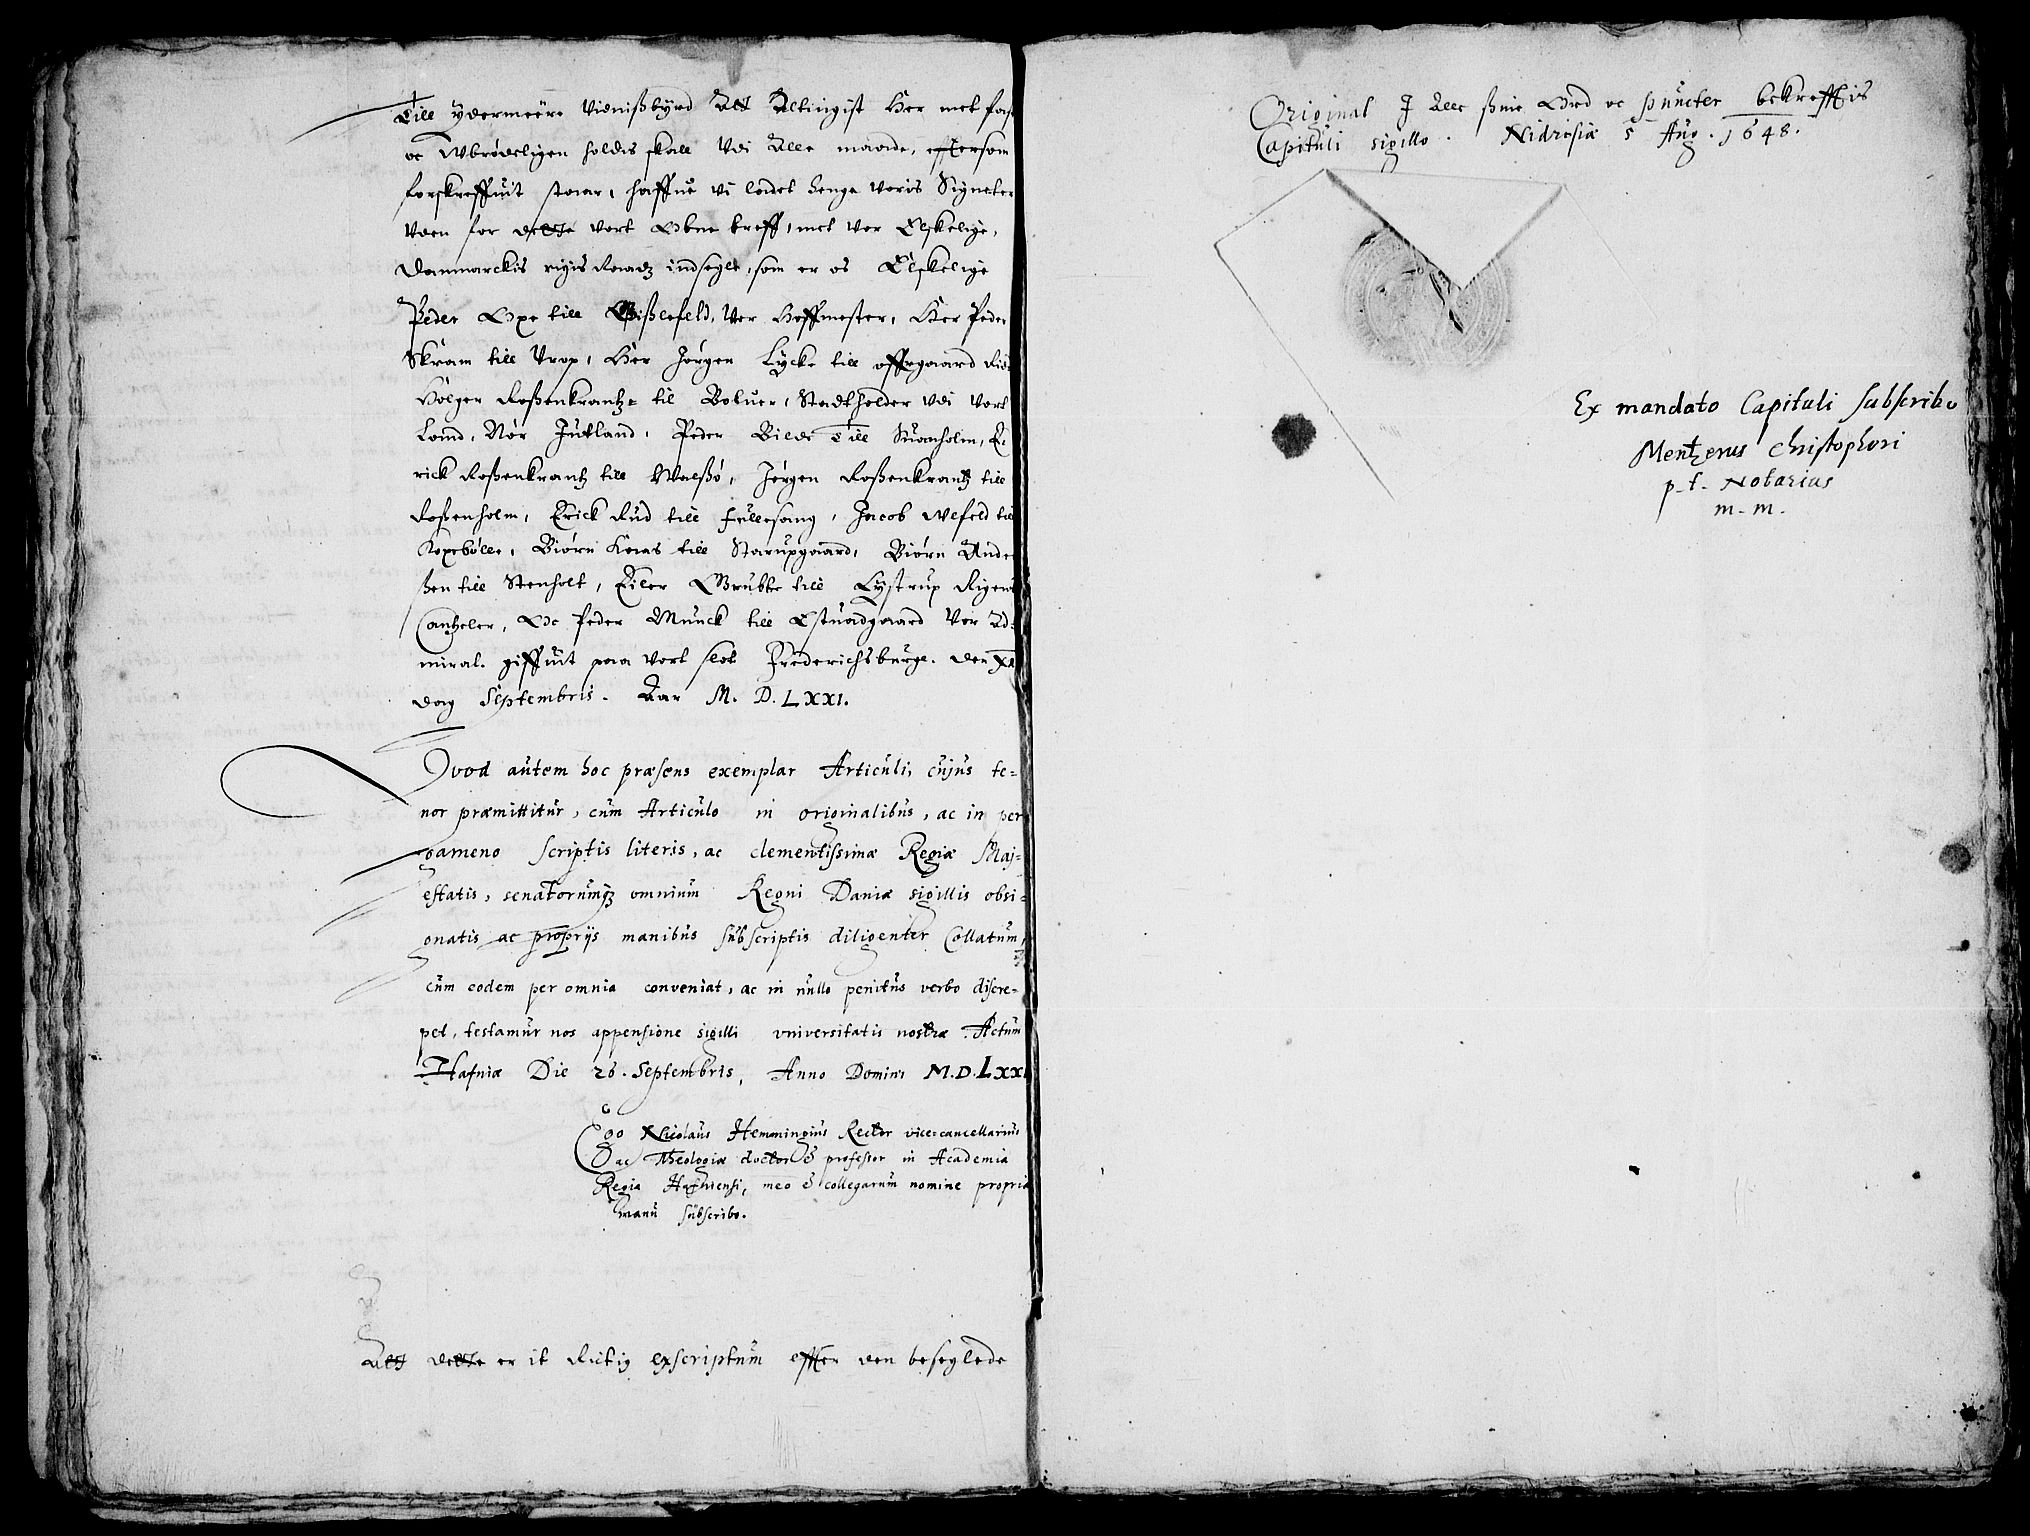 Till ydermeere vidnißbyrd Att Altingist Her met fast
oc Wbrødeligen holdis skall Vdi Alle maade, efftersom
forskreffuit staar, haffue vi ladet henge voris Signeter
Vden for dette vort Obne breff, met vor Elskelige,
Danmarckis rigis Raadz indsegle, som er os Elskelige
Peder Oxe till Gißlefeld, Vor Hoffmester, Her Peder
Skram till Vrop, Her Jørgen Lycke till offregaard Rid
Holger Roßenkrantz til Boluer, Stadtholder vdi vort
Land, Nør Jutland, Peder Bilde Till Suanholm, E
rick Roßenkrantz till Walßø, Jørgen Roßenkrantz till
Roßenholm, Erick Rud till Fullesang, Jacob Wlfeld till
Koxebølle, Biørn Kaas till Starupgaard, Biørn Ander
ßen till Stenholt, Eiler Grubbe till Lystrup Rigens
Cantzeler, Oc Peder Munck till Estuadgaard Vor Ad-
miral. giffuit paa vort slot Frederichsburge. den
dag Septembris. Aar M. D. LXXI.
Qvod autem hoc præsens exemplar Articuli, cujus te=
nor præmittitur, cum Articulo in originalibus, ac in per
gameno scriptis literis, ac clementissimæ Regiæ Maj=
estatis, senatorumqz omnium Regni Daniæ sigillis obsi=
gnatis ac proprijs manibus subscriptis diligenter Collatum,
cum eodem per omnia conveniat, ac in nullo penitus verbo discre=
pet, testamur nos appensione sigilli vniversitatis nostræ. Actum
Hafniæ Die 26. Septembris, Anno Domini M.D.LXXI
Ego Nicolaus Hemmingius Rector vice=cancellarius
ac Theologiæ doctor & professor in Academia
Regia Hafniensi, meo & collegarum nomine propria
manu subscribo.
Att dette er it Rictig exscriptum effter den beseglede
Original J Alle ßine Ord oc puncter bekrefftis
Capituli sigillo. Nidrosiæ 5 Aug. 1648.
Ex mandato Capituli subscribo
Mentzerus Christophori
p. t. Notarius
m. m.